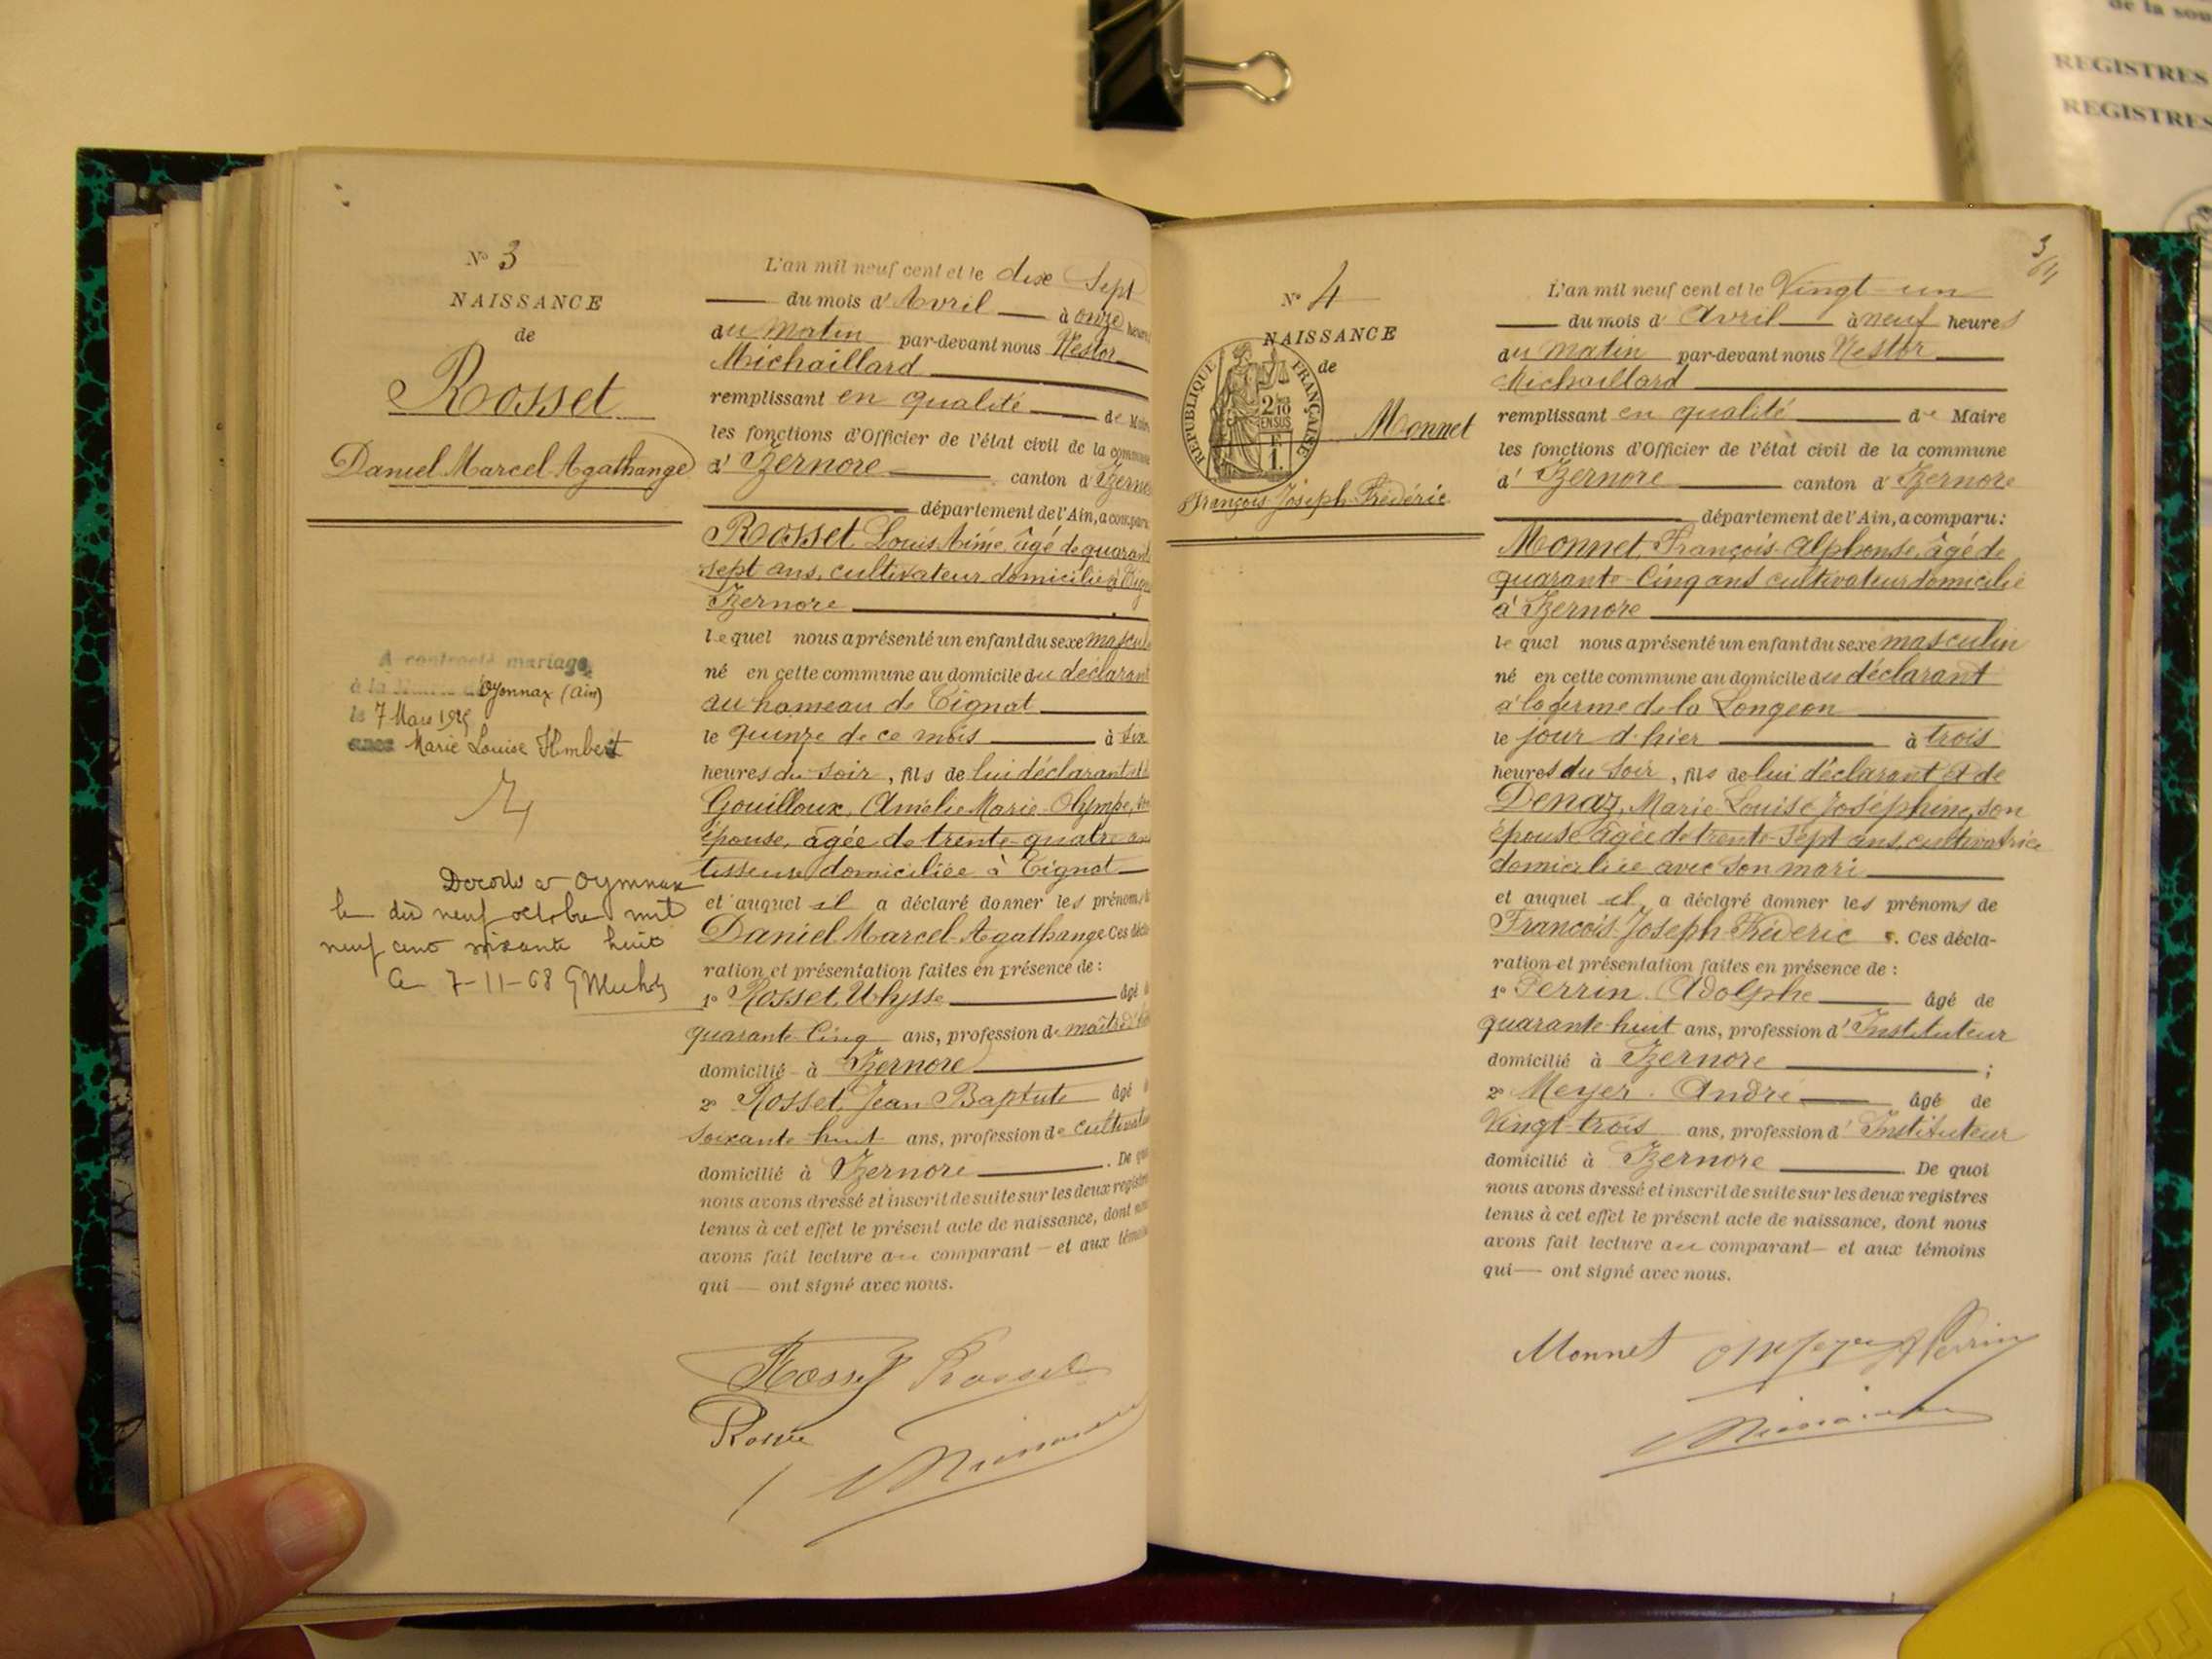 de la sou
REGISTRES
REGISTRES
N° 3
NAISSANCE
de
Rosset
Daniel Marcel Agathange
A contracté mariage
à la Mairie d'Oyonnax (Ain)
le 7 Mars
avec Marie Louise Humbert
Décédé à Oyonnax
le dix neuf octobre mil
neuf cent soixante huit
Le 7-11-68
L'an mil neuf cent et le dix Sept
du mois d'Avril à onze heures
du matin par-devant nous Nestor
Michaillard
remplissant en qualité de Maire
les fonctions d'Officier de l'état civil de la commune
d'Izernore canton d'Izernore
département de l'Ain, a comparu
Rosset Louis Aimé âgé de quarante
sept ans, cultivateur domicilié à Tignat
Izernore
lequel nous a présenté un enfant du sexe masculin
né en cette commune au domicile du déclarant
au hameau de Tignat
le quinze de ce mois à six
heures du soir, fils de lui déclarant et de
Gouilloux, Amélie Marie-Olympe, son
épouse, âgée de trente-quatre ans
tisseuse domiciliée à Tignat
et auquel il a déclaré donner les prénoms de
Daniel Marcel-Agathange Ces décla-
ration et présentation faites en présence de :
1° Rosset Ulysse âgé de
quarante-cinq ans, profession de maître d'
domicilié à Izernore
2° Rosset, Jean Baptiste âgé de
soixante huit ans, profession de cultivateur
domicilié à Izernore. De quoi
nous avons dressé et inscrit de suite sur les deux registres
tenus à cet effet le présent acte de naissance, dont nous
avons fait lecture au comparant et aux témoins
qui ont signé avec nous.
Rosset Rosset
Rosset
N° 4
NAISSANCE
de
REPUBLIQUE FRANÇAISE
2/10
EN SUS
1 F.
Monnet
François-Joseph-Frédéric
3
L'an mil neuf cent et le Vingt-un
du mois d'Avril à neuf heures
du matin par-devant nous Nestor
Michaillard
remplissant en qualité de Maire
les fonctions d'Officier de l'état civil de la commune
d'Izernore canton d'Izernore
département de l'Ain, a comparu :
Monnet, François-Alphonse, âgé de
quarante-cinq ans cultivateur domicilié
à Izernore
lequel nous a présenté un enfant du sexe masculin
né en cette commune au domicile du déclarant
à la ferme de la Longeon
le jour d'hier à trois
heures du soir, fils de lui déclarant et de
Denaz, Marie-Louise Joséphine, son
épouse âgée de trente-sept ans, cultivatrice
domiciliée avec son mari
et auquel il a déclaré donner les prénoms de
François-Joseph-Frédéric. Ces décla-
ration et présentation faites en présence de :
1° Perrin Adolphe âgé de
quarante-huit ans, profession d'Instituteur
domicilié à Izernore ;
2° Meyer. André âgé de
Vingt-trois ans, profession d'Instituteur
domicilié à Izernore. De quoi
nous avons dressé et inscrit de suite sur les deux registres
tenus à cet effet le présent acte de naissance, dont nous
avons fait lecture au comparant et aux témoins
qui ont signé avec nous.
Monnet A Meyer A Perrin